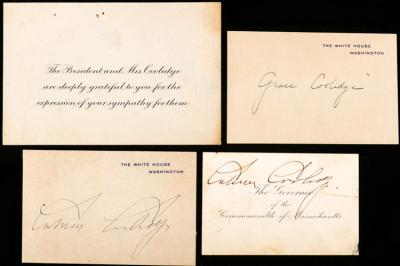 The President and Mrs. Coolidge
are deeply grateful to you for the
expression of your sympathy for them
THE WHITE HOUSE
WASHINGTON
Grace Coolidge
THE WHITE HOUSE
WASHINGTON
Calvin Coolidge
Calvin Coolidge
The Governor
of the
Commonwealth of Massachusetts